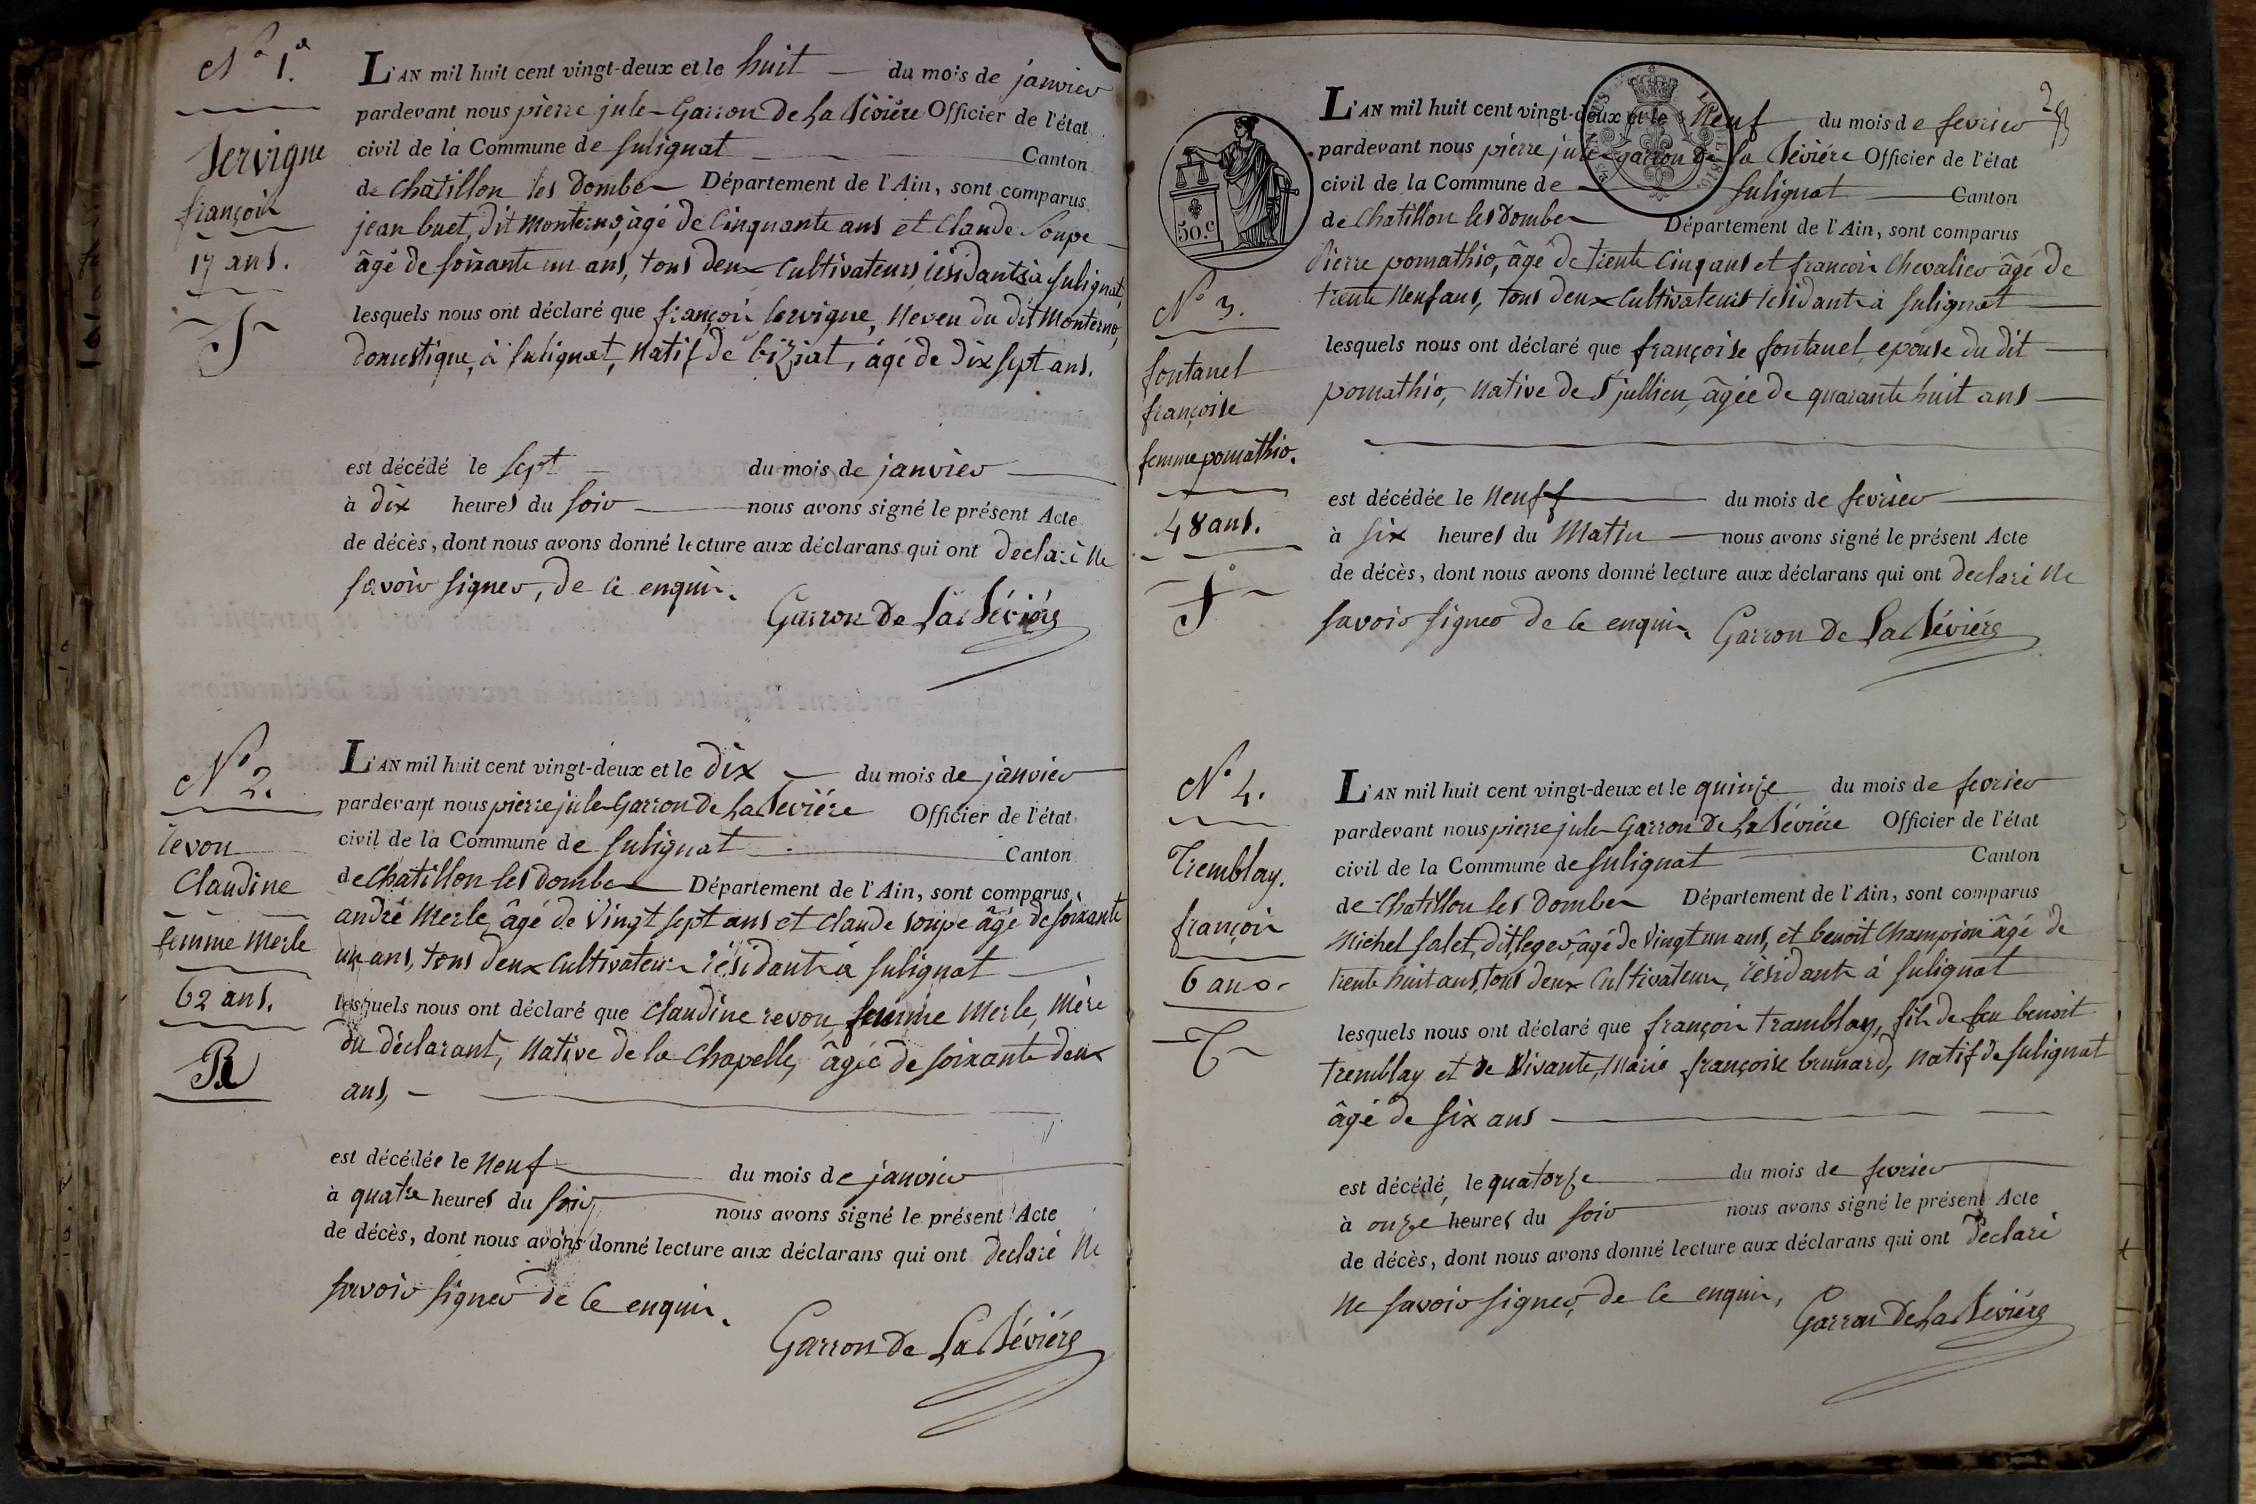 N° 1.er
Servigne
françois
17 ans.
S
L'AN mil huit cent vingt-deux et le huit du mois de janvier
pardevant nous pierre jule Garron De La Séviére Officier de l'état
civil de la Commune de Sulignat Canton
de Chatillon les Dombes Département de l'Ain, sont comparus
jean buet, dit Monterno, âgé de Cinquante ans et Claude Soupe
âgé de soixante un ans, tous deux Cultivateurs résidants à Sulignat,
lesquels nous ont déclaré que françois servigne, Neveu du dit Monterno,
domestique, à Sulignat, Natif de biziat, âgé de dix sept ans.
est décédé le sept du mois de janvier
à dix heures du soir nous avons signé le présent Acte
de décès, dont nous avons donné lecture aux déclarans qui ont declaré Ne
savoir signer, de ce enquis.
Garron De La Séviére
N° 2.
revon
Claudine
femme Merle
62 ans.
R
L'AN mil huit cent vingt-deux et le dix du mois de janvier
pardevant nous pierre jule Garron De La Seviére Officier de l'état
civil de la Commune de Sulignat Canton
de Chatillon les Dombes Département de l'Ain, sont comparus
andré Merle, âgé de Vingt sept ans et Claude soupe âgé de soixante
un ans, tous deux Cultivateurs résidants à Sulignat
lesquels nous ont déclaré que Claudine revon, femme Merle, Mère
du déclarant, Native de la Chapelle, âgée de soixante deux
ans,
est décédée le Neuf du mois de janvier
à quatre heures du soir nous avons signé le présent Acte
de décès, dont nous avons donné lecture aux déclarans qui ont declaré Ne
savoir signer de Ce enquis.
Garron De La Séviére
50.c
N° 3.
fontanel
françoise
femme pomathio.
48 ans.
f
L'AN mil huit cent vingt-deux et le Neuf du mois de fevrier
pardevant nous pierre jule garron de La Séviére Officier de l'état
civil de la Commune de Sulignat Canton
de Chatillon les Dombes Département de l'Ain, sont comparus
Pierre pomathio, âgé de trente Cinq ans et françois Chevalier âgé de
trente Neuf ans, tous deux Cultivateurs résidants à Sulignat
lesquels nous ont déclaré que françoise fontanel, epouse du dit
pomathio, Native de St jullien, âgée de quarante huit ans
est décédée le Neuf du mois de fevrier
à six heures du Matin nous avons signé le présent Acte
de décès, dont nous avons donné lecture aux déclarans qui ont declaré Ne
savoir signer de Ce enquis Garron De La Séviére
N° 4.
Tremblay.
françois
6 ans.
T
L'AN mil huit cent vingt-deux et le quinze du mois de fevrier
pardevant nous pierre jule Garron De La Séviére Officier de l'état
civil de la Commune de Sulignat Canton
de Chatillon les Dombes Département de l'Ain, sont comparus
Michel Salet, dit, leger, âgé de Vingt un ans, et benoit Champion âgé de
trente huit ans, tous deux Cultivateurs, résidants à Sulignat
lesquels nous ont déclaré que françois tramblay, fils de feu benoit
tremblay et de Vivante, Marie françoise brunard, Natif de Sulignat
âgé de six ans
est décédé, le quatorze du mois de fevrier
à onze heures du soir nous avons signé le présent Acte
de décès, dont nous avons donné lecture aux déclarans qui ont déclaré
Ne savoir signer, de Ce enquis,
Garron De La Séviére